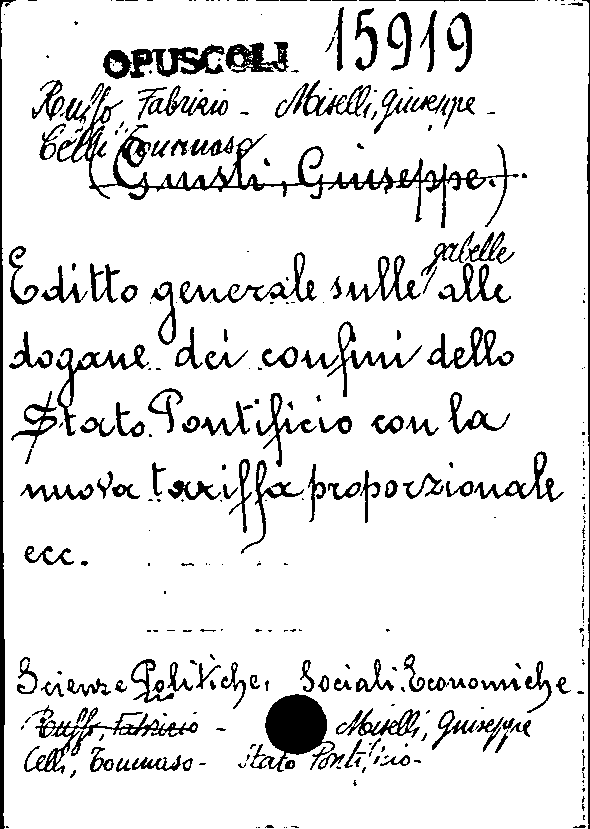 OPUSCOLI 15919
Ruffo, Fabrizio - Miselli, Giuseppe -
Celli Tommaso
(Giusti, Giuseppe.)
gabelle
Editto generale sulle alle
dogane dei confini dello
Stato Pontificio con la
nuova tariffa proporzionale
ecc.
Scienze Politiche, Sociali. Economiche.
Ruffo, Fabrizio - Miselli, Giuseppe
Celli, Tommaso - Stato Pontificio -